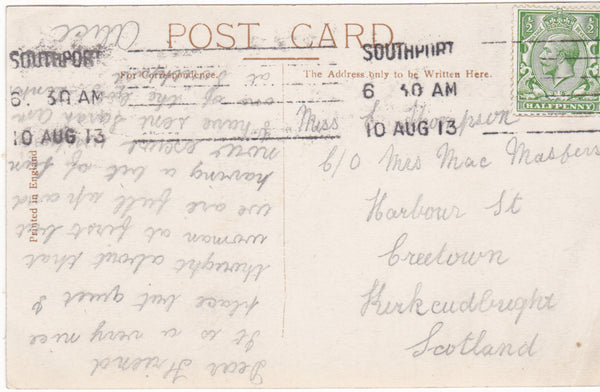 POST CARD
SOUTHPORT
6. 30 AM
10 AUG 13
SOUTHPORT
6 30 AM
10 AUG 13
½ ½
HALFPENNY
For Correspondence.
The Address only to be Written Here.
Printed in England
Dear Friend
It is a very nice
place but quiet I
thought about that
woman at first but
we are full up and
having a bit of fun
now
I have sent Sarah Ann
one of the
at
Alice
Miss Thompson
C/O Mrs Mac
Harbour St
Creetown
Kirkcudbright
Scotland